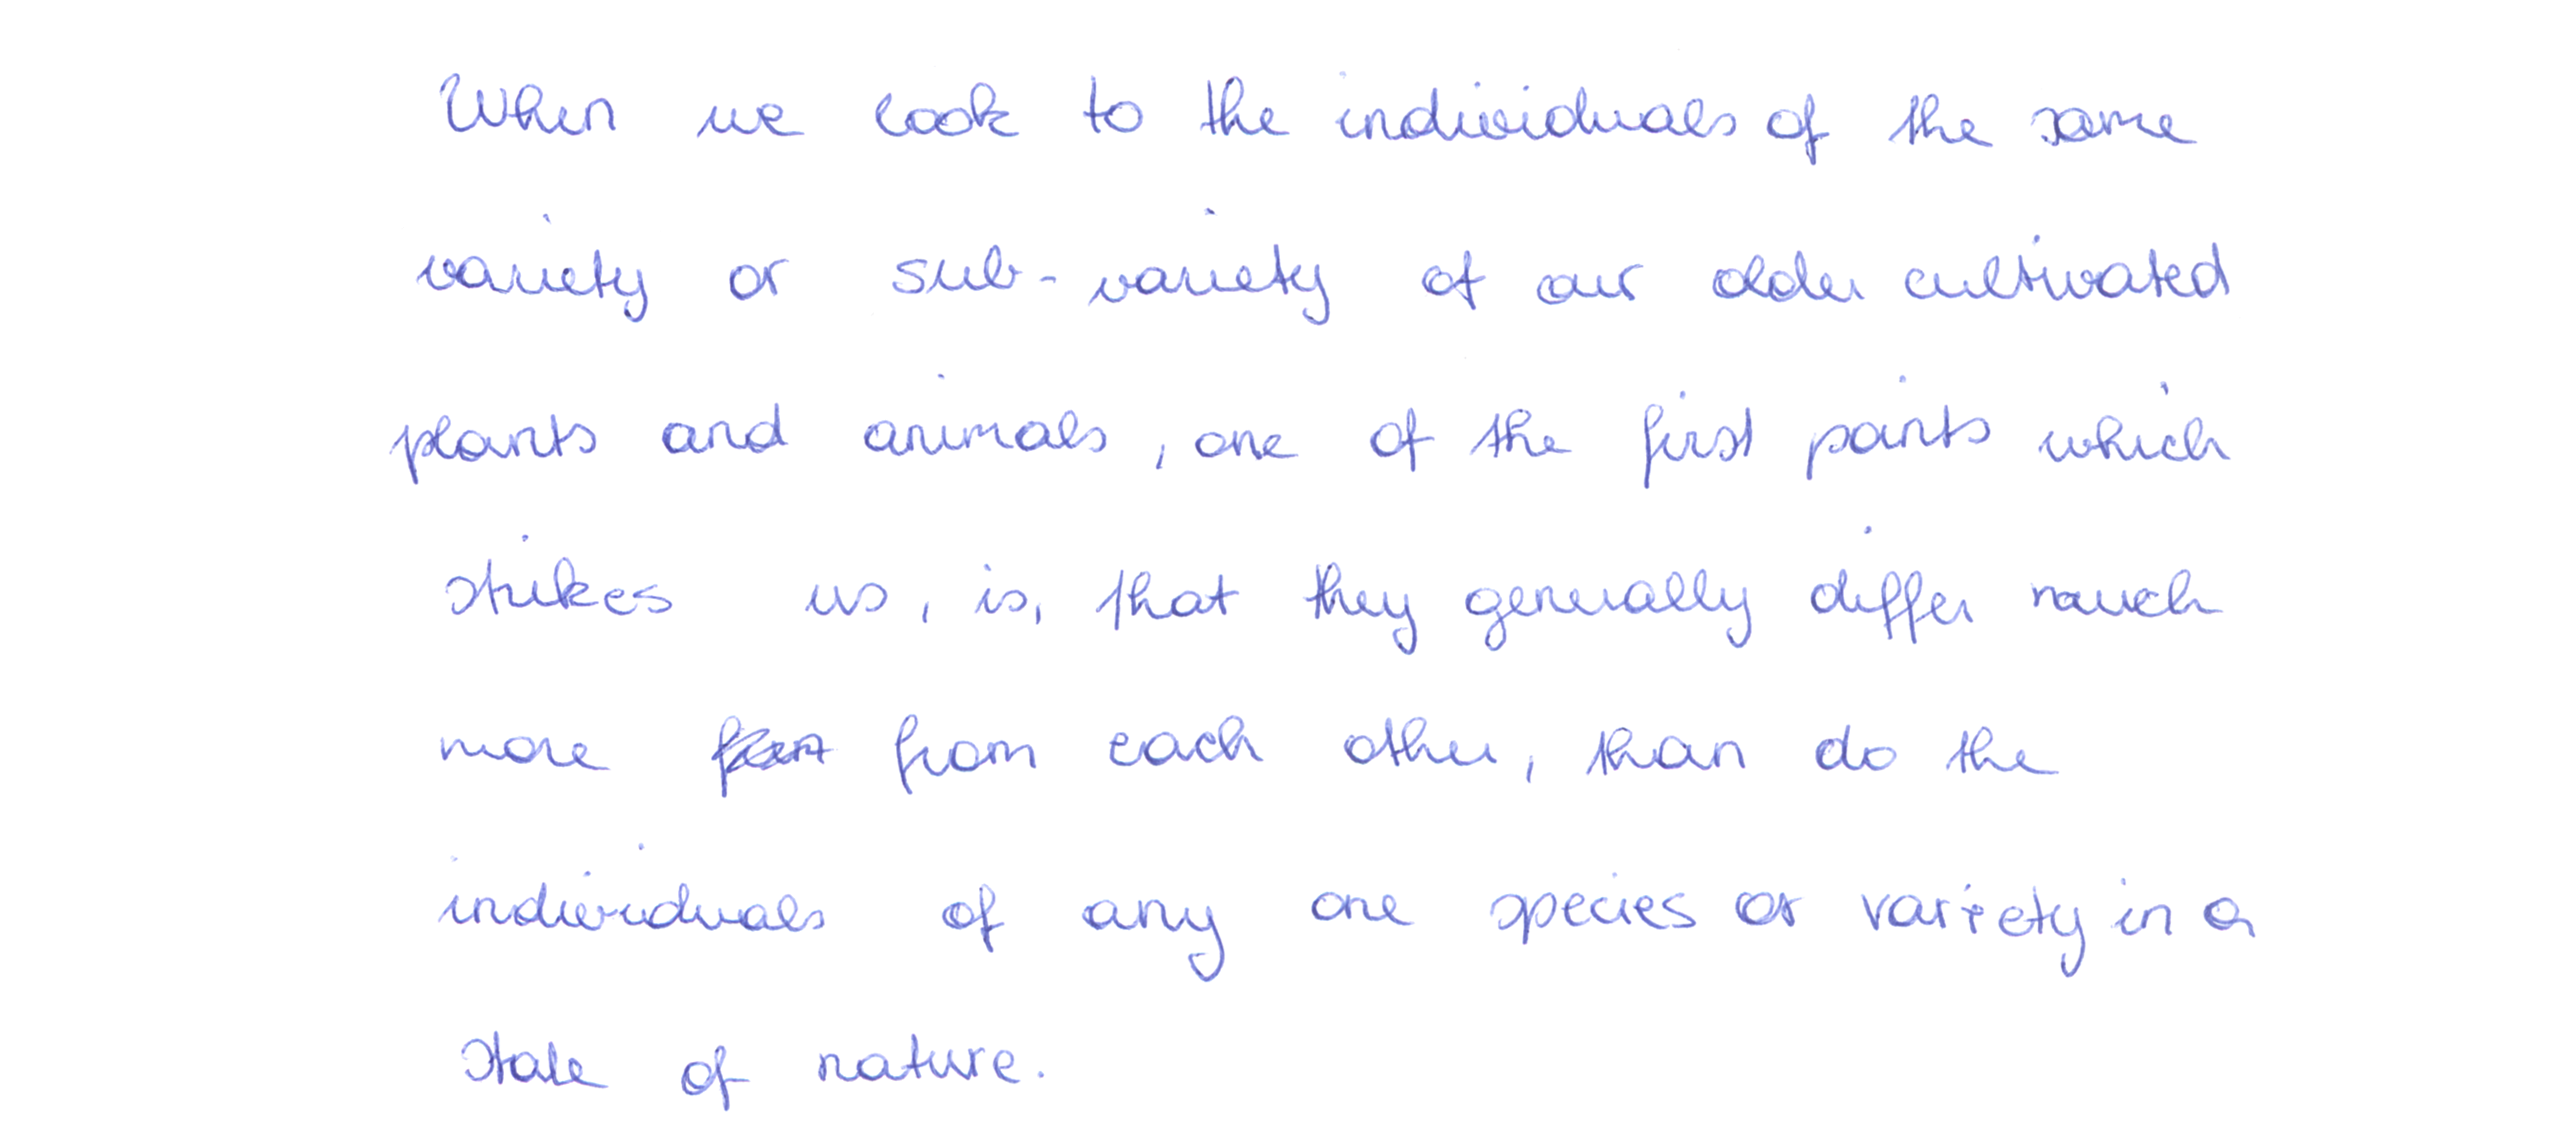 When we look to the individuals of the same
variety or sub-variety of our older cultivated
plants and animals, one of the first points which
strikes us, is, that they generally differ much
more from each other, than do the
individuals of any one species or variety in a
state of nature.